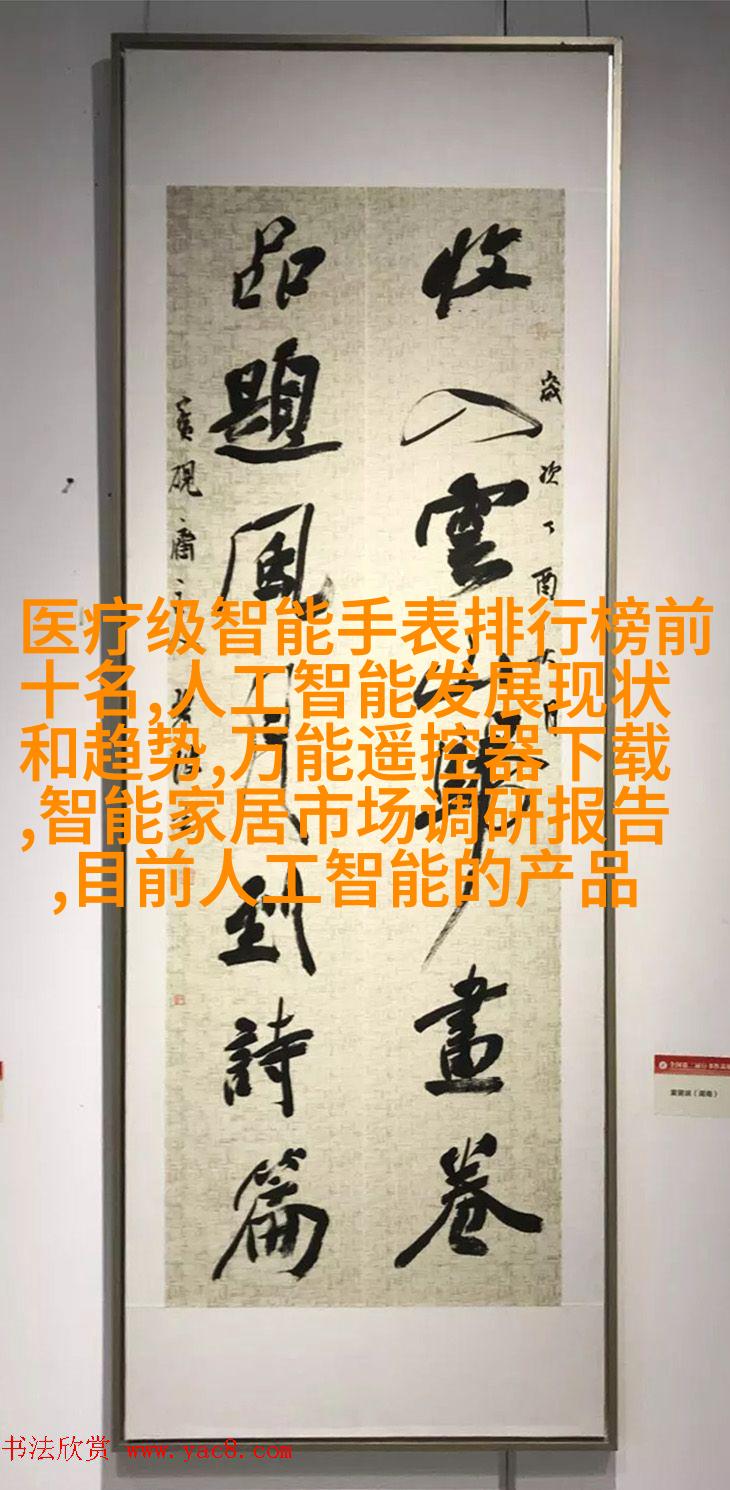 收入雲山歸畫卷
品題風月到詩篇
歲次丁酉
硯齋
医疗级智能手表排行榜前
十名,人工智能发展现状
和趋势,万能遥控器下载
,智能家居市场调研报告
,目前人工智能的产品
(湖南)
书法欣赏 www.yac8.com